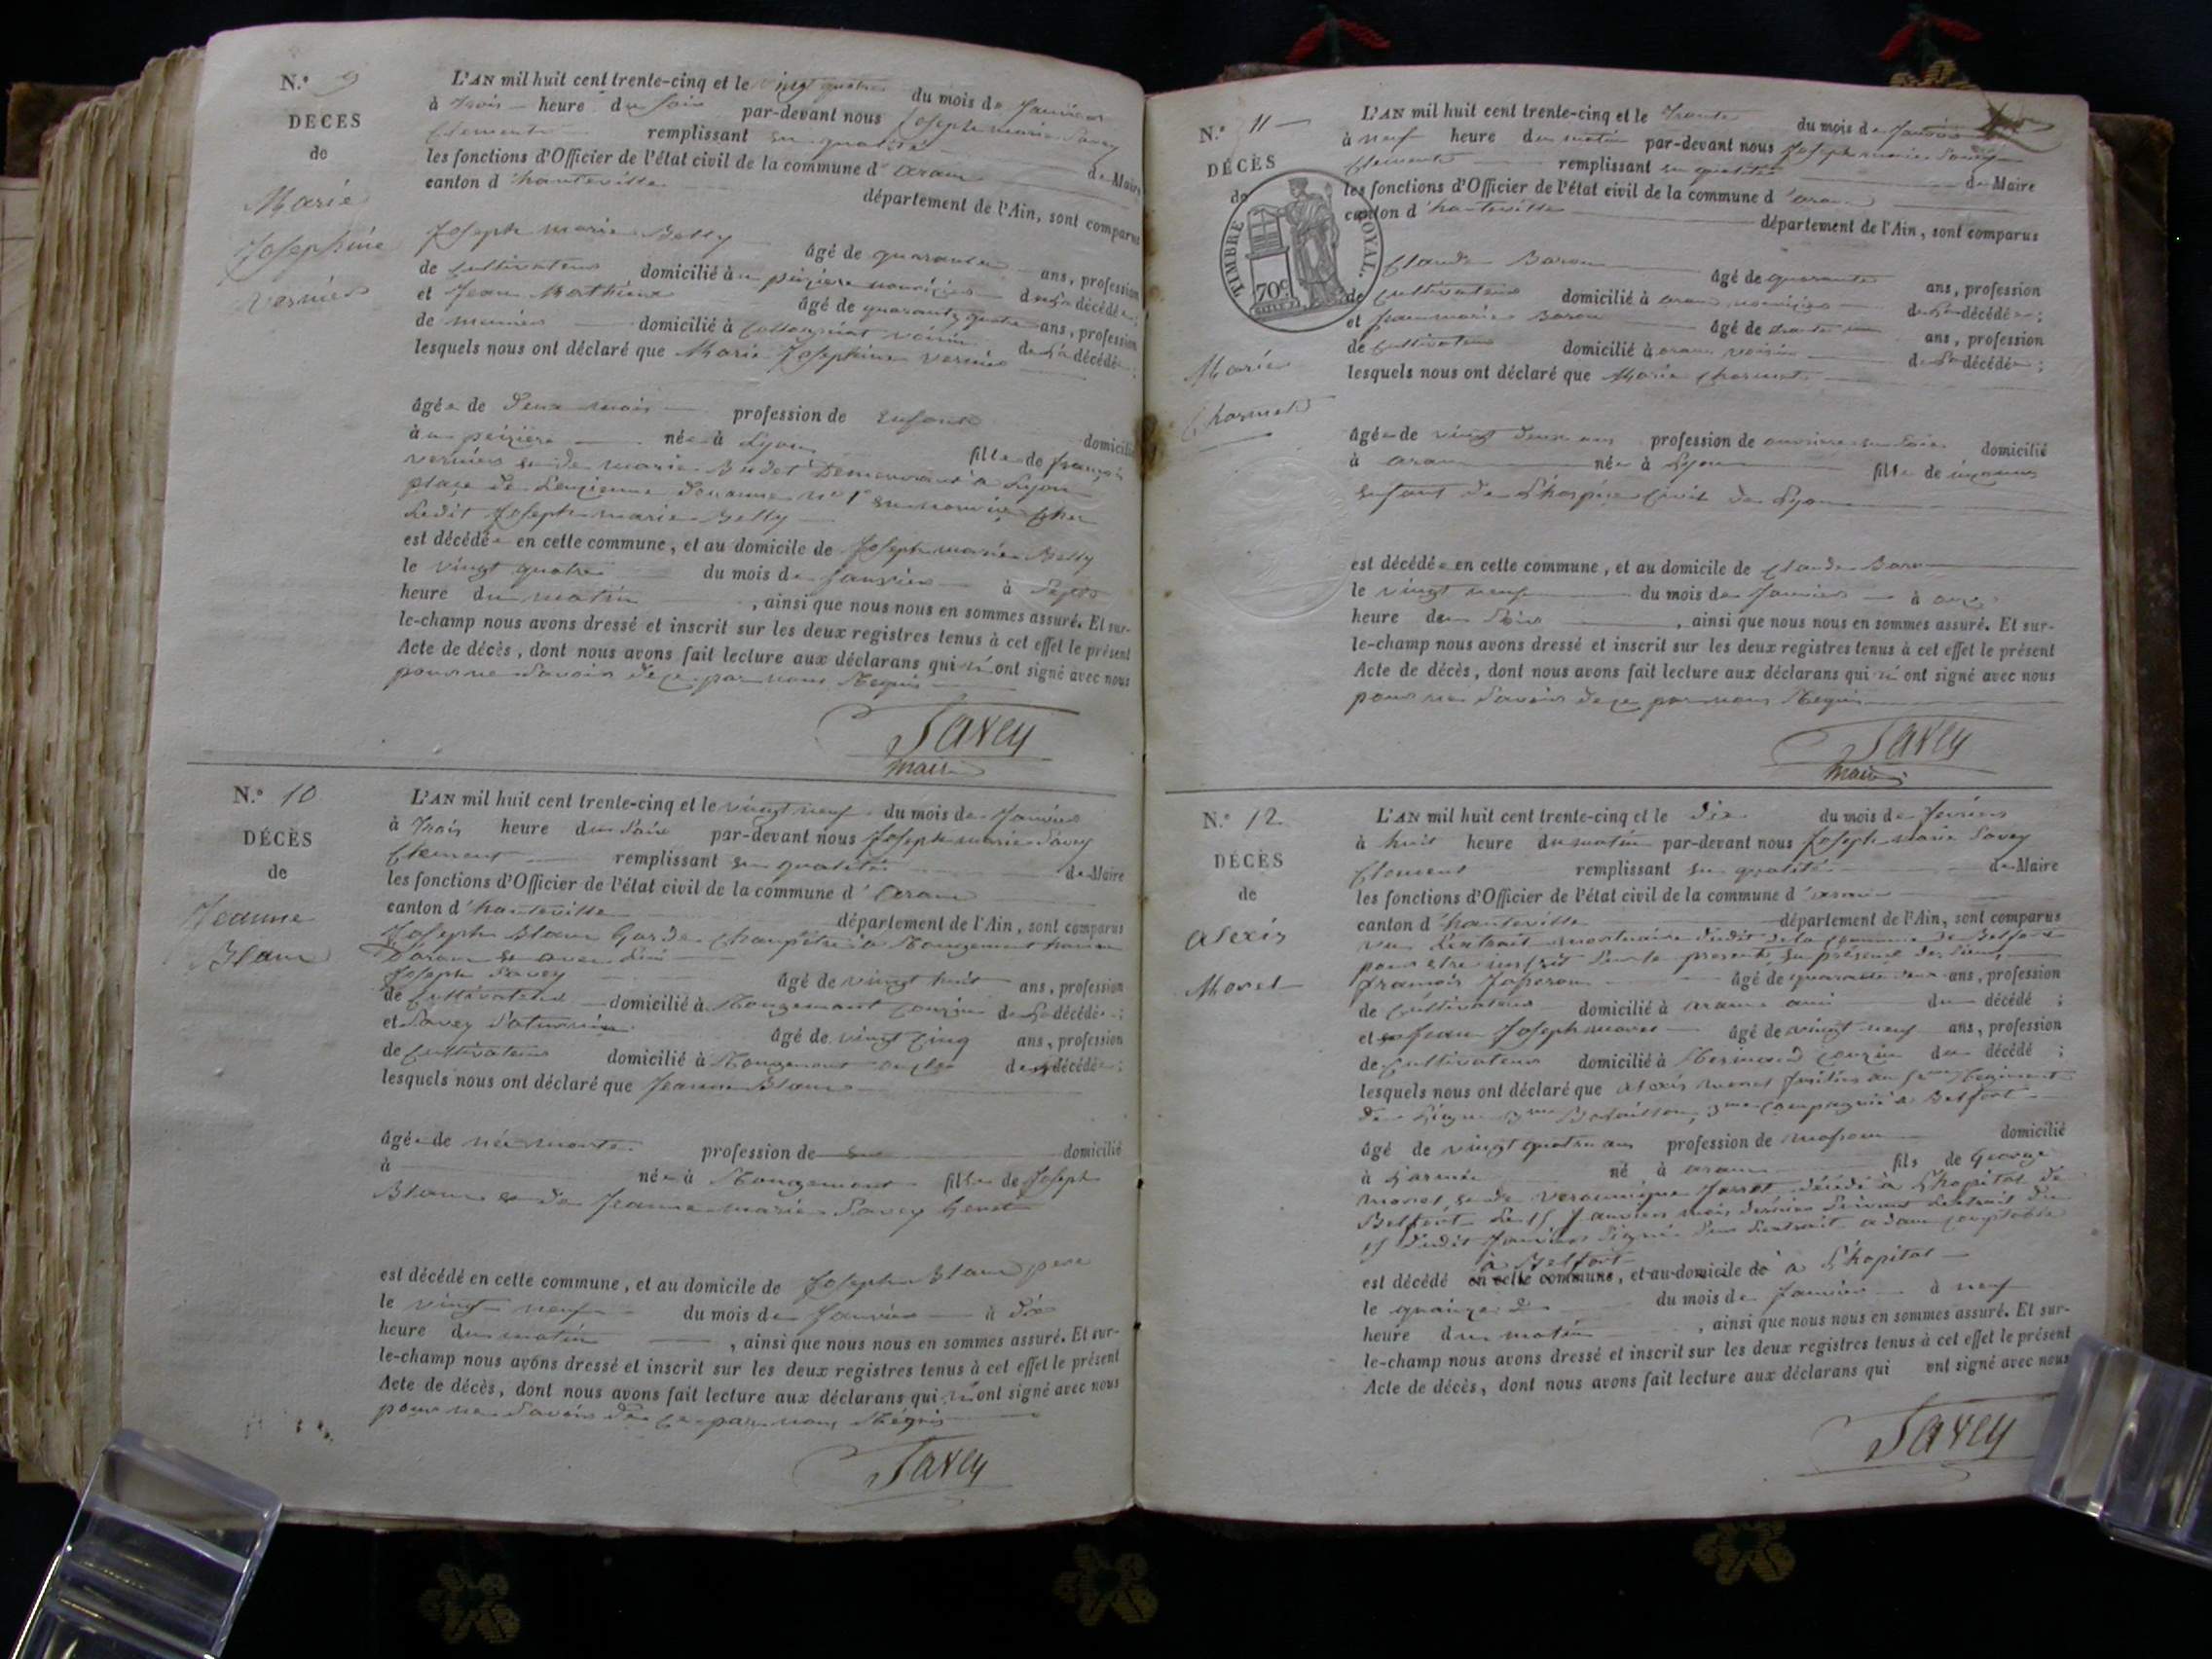 N.° 9
DÉCÈS
de
Marie
Josephine
Vernier
L'AN mil huit cent trente-cinq et le vingt quatre du mois de Janvier
à trois heure du soir par-devant nous Joseph marie Savey
Clement remplissant en qualité de Maire
les fonctions d'Officier de l'état civil de la commune d'aranc
canton d'hauteville département de l'Ain, sont comparus
Joseph marie Belly âgé de quarante ans, profession
de cultivateur domicilié à nourricier de la décédée;
et Jean âgé de quarante quatre ans, profession
de domicilié à voisin de la décédée;
lesquels nous ont déclaré que Marie Josephine Vernier
âgée de deux mois profession de enfant domicilié
à née à Lyon fille de françois
vernier et de marie Budet Demeurant à Lyon
place de douanne n° 1er en nourrice chez
Ledit Joseph marie Belly
est décédée en cette commune, et au domicile de Joseph marie Belly
le vingt quatre du mois de Janvier à Sept
heure du matin, ainsi que nous nous en sommes assuré. Et sur-
le-champ nous avons dressé et inscrit sur les deux registres tenus à cet effet le présent
Acte de décès, dont nous avons fait lecture aux déclarans qui n'ont signé avec nous
pour ne Savoir de ce par nous Requis
Savey
maire
N.° 10
DÉCÈS
de
Jeanne
Blanc
L'AN mil huit cent trente-cinq et le vingt neuf du mois de Janvier
à trois heure du Soir par-devant nous Joseph marie Savey
Clement remplissant en qualité de Maire
les fonctions d'Officier de l'état civil de la commune d'aranc
canton d'hauteville département de l'Ain, sont comparus
Joseph Blanc Garde Champêtre à Rougemont
D'aranc
Joseph Savey âgé de vingt huit ans, profession
de cultivateur domicilié à Rougemont couzin de la décédée;
et Savey Saturnin âgé de vingt cinq ans, profession
de cultivateur domicilié à Rougemont oncle de la décédée;
lesquels nous ont déclaré que Jeanne Blanc
âgée de née morte profession de domicilié
à née à Rougemont fille de Joseph
Blanc et de Jeanne marie Savey
est décédé en cette commune, et au domicile de Joseph Blanc pere
le vingt neuf du mois de Janvier à dix
heure du matin, ainsi que nous nous en sommes assuré. Et sur-
le-champ nous avons dressé et inscrit sur les deux registres tenus à cet effet le présent
Acte de décès, dont nous avons fait lecture aux déclarans qui n'ont signé avec nous
pour ne Savoir de ce par nous Réquis
Savey
N.° 11
DÉCÈS
de
TIMBRE ROYAL.
70c
Marie
Charmet
L'AN mil huit cent trente-cinq et le Trente du mois de Janvier
à neuf heure du matin par-devant nous Joseph marie Savey
Clement remplissant en qualité de Maire
les fonctions d'Officier de l'état civil de la commune d'aranc
canton d'hauteville département de l'Ain, sont comparus
Claude Baron âgé de quarante ans, profession
de cultivateur domicilié à aranc nourricier de la décédée;
et Jean marie Baron âgé de trente ans, profession
de cultivateur domicilié à aranc voisin de la décédée;
lesquels nous ont déclaré que Marie Charmet
âgée de vingt deux ans profession de ouvriere en Soie domicilié
à aranc née à Lyon fille de
enfant de L'hospice Civil de Lyon
est décédée en cette commune, et au domicile de Claude Baron
le vingt neuf du mois de Janvier à onze
heure du Soir, ainsi que nous nous en sommes assuré. Et sur-
le-champ nous avons dressé et inscrit sur les deux registres tenus à cet effet le présent
Acte de décès, dont nous avons fait lecture aux déclarans qui n'ont signé avec nous
pour ne Savoir de ce par nous Requis
Savey
maire
N.° 12
DÉCÈS
de
Alexis
Moret
L'AN mil huit cent trente-cinq et le Dix du mois de fevrier
à huit heure du matin par-devant nous Joseph marie Savey
Clement remplissant en qualité de Maire
les fonctions d'Officier de l'état civil de la commune d'aranc
canton d'hauteville département de l'Ain, sont comparus
vu L'extrait mortuaire dudit de la Commune de Belfort
pour etre inscrit Sur le present en présence des Sieurs
françois âgé de quarante deux ans, profession
de cultivateur domicilié à aranc ami du décédé;
et Jean Joseph moret âgé de vingt neuf ans, profession
de cultivateur domicilié à couzin du décédé;
lesquels nous ont déclaré que alexis moret fusilier au Regiment
de Ligne 3me Bataillon, 3me compagnie à Belfort
âgé de vingt quatre ans profession de domicilié
à L'armée né à aranc fils de George
moret et de veronnique décédé à L'hopital de
Belfort Le 15 Janvier mois dernier Suivant L'extrait du
15 dudit Janvier Signé comptable
à Belfort
est décédé en cette commune, et au domicile de à L'hopital
le quainze du mois de Janvier à neuf
heure du matin, ainsi que nous nous en sommes assuré. Et sur-
le-champ nous avons dressé et inscrit sur les deux registres tenus à cet effet le présent
Acte de décès, dont nous avons fait lecture aux déclarans qui ont signé avec nous
Savey